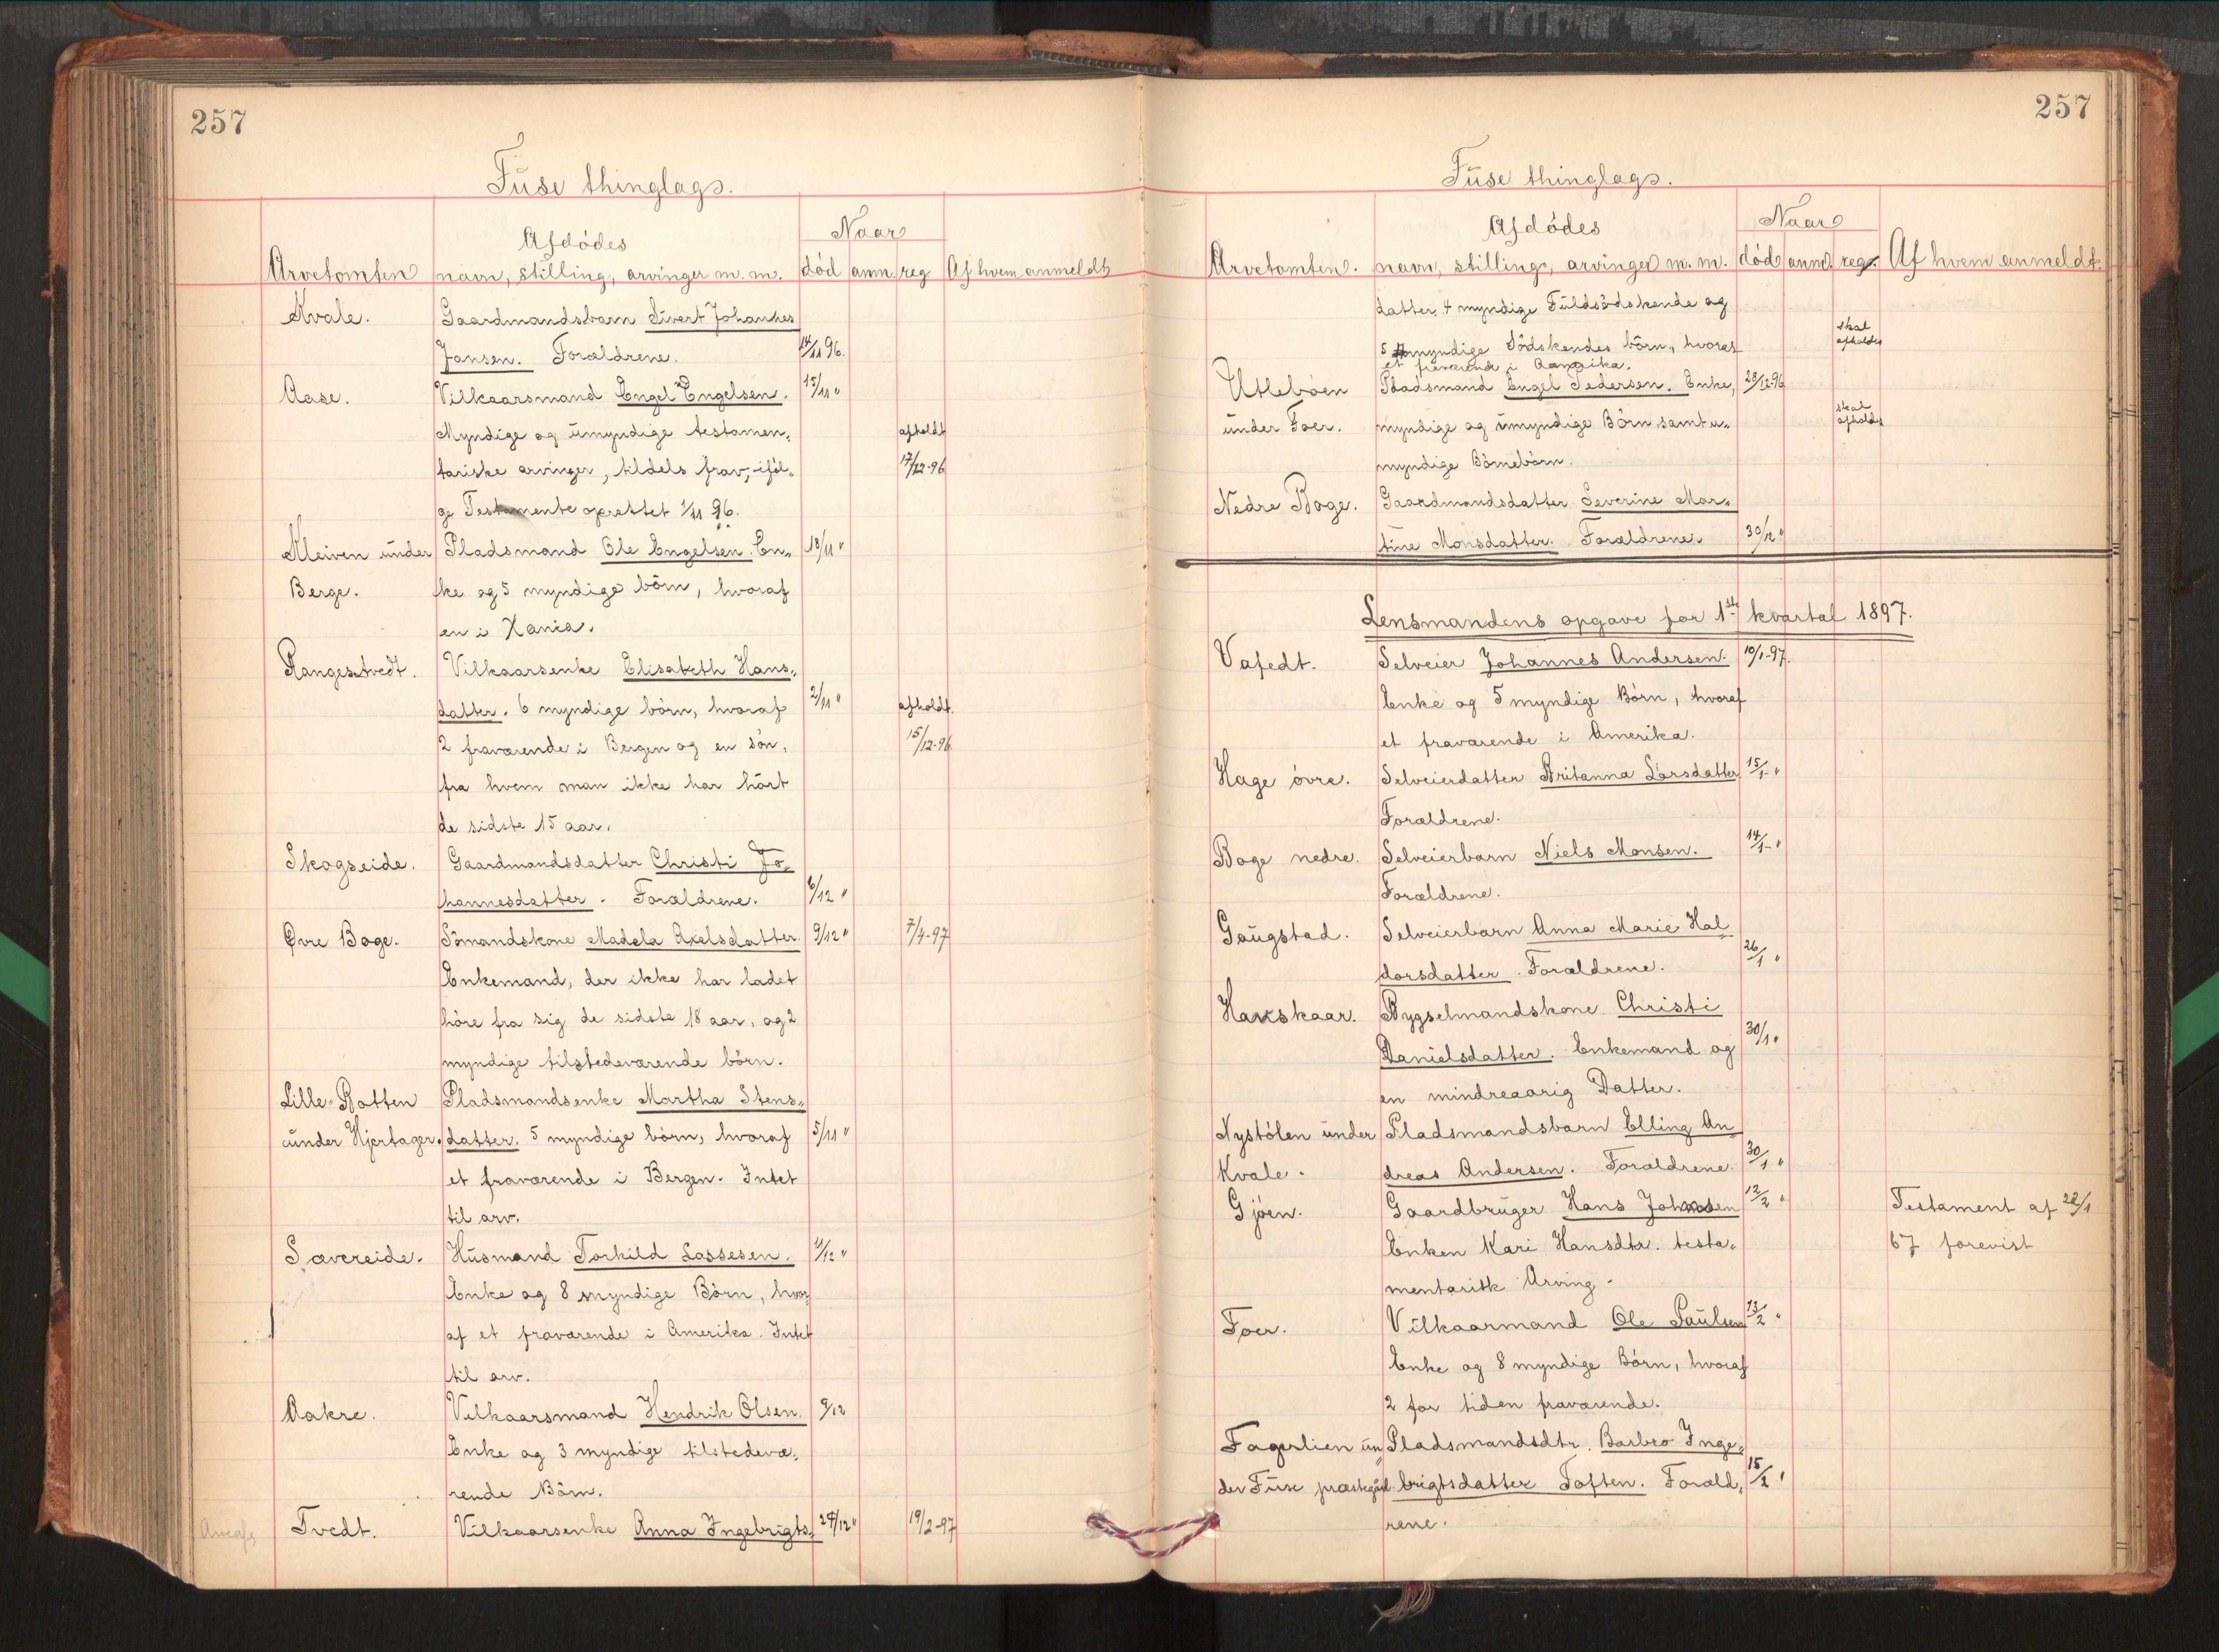 257
Fuse thinglags.
Arvetomten
Afdödes
navn, stilling, arvinger m. m.
Naar
död anm. reg Af hvem anmeldt
Kvale. Gaardmandsbarn Sivert Johannes
Jansen. Forældrene. 14/11 96.
Aase. Vilkaarsmand Engel Engelsen. 15/11 "
Myndige og umyndige testamen- afholdt
tariske arvinger, tildels frav, iföl- 17/12-96
ge Testamente oprettet 1/11 96.
Kleiven under Pladsmand Ole Engelsen. En- 18/11 "
Berge. ke og 5 myndige börn, hvoraf
en i Xania.
Rangestvedt. Vilkaarsenke Elisabeth Hans-
datter. 6 myndige börn, hvoraf 2/11 " afholdt.
2 fraværende i Bergen og en sön, 15/12-96
fra hvem man ikke har hört
de sidste 15 aar.
Skogseide. Gaardmandsdatter Christi Jo-
hannesdatter. Forældrene. 6/12 "
Øvre Boge. Sömandskone Madela Axelsdatter. 9/12 " 7/4-97
Enkemand, der ikke har ladet
höre fra sig de sidste 18 aar, og 2
myndige tilstedeværende börn.
Lille-Botten Pladsmandsenke Martha Stens-
under Hjertager. datter. 5 myndige börn, hvoraf 5/11 "
et fraværende i Bergen. Intet
til arv.
Sævereide. Husmand Torkild Lassesen. 4/12 "
Enke og 8 myndige Börn, hvor
af et fraværende i Amerika. Intet
til arv.
Aakre. Vilkaarsmand Hendrik Olsen. 9/12
Enke og 3 myndige tilstedevæ-
rende Börn.
Tvedt. Vilkaarsenke Anna Ingebrigts- 24/12 " 19/2-97
257
Fuse thinglags.
Arvetomten.
Afdödes
navn, stilling, arvinger m. m.
Naar
död anm. reg. Af hvem anmeldt.
datter. 4 myndige Fuldsödskende og
5 myndige Södskendes börn, hvoraf skal afholdes
et fraværende i Amerika.
Utleböen Pladsmand Engel Pedersen. Enke, 28/12-96
under Foer. myndige og umyndige Börn samt u- skal afholdes
myndige Börnebörn.
Nedre Boge. Gaardmandsdatter Severine Mar-
tine Monsdatter. Forældrene. 30/12 "
Lensmandens opgave for 1ste kvartal 1897.
Vafedt. Selveier Johannes Andersen. 10/1-97.
Enke og 5 myndige Börn, hvoraf
et fraværende i Amerika.
Hage övre. Selveierdatter Britanna Larsdatter 15/1- "
Forældrene.
Boge nedre. Selveierbarn Niels Monsen. 14/1- "
Forældrene.
Gaugstad. Selveierbarn Anna Marie Hal
dorsdatter. Forældrene. 26/1 "
Havskaar. Bygselmandskone Christi
Danielsdatter. Enkemand og 30/1 "
en mindreaarig Datter.
Nystölen under Pladsmandsbarn Elling An
Kvale. dreas Andersen. Forældrene. 30/1 "
Gjöen. Gaardbruger Hans Johnsen 12/2 " Testament af 22/1
Enken Kari Hansdtr. testa- 67 forevist
mentarisk Arving.
Foer. Vilkaarmand Ole Paulsen 13/2 "
Enke og 8 myndige Börn, hvoraf
2 for tiden fraværende.
Fagerlien un Pladsmandsdtr. Barbro Inge-
der Fuse præstegård. brigtsdatter Toften. Foræld- 15/2 "
rene.